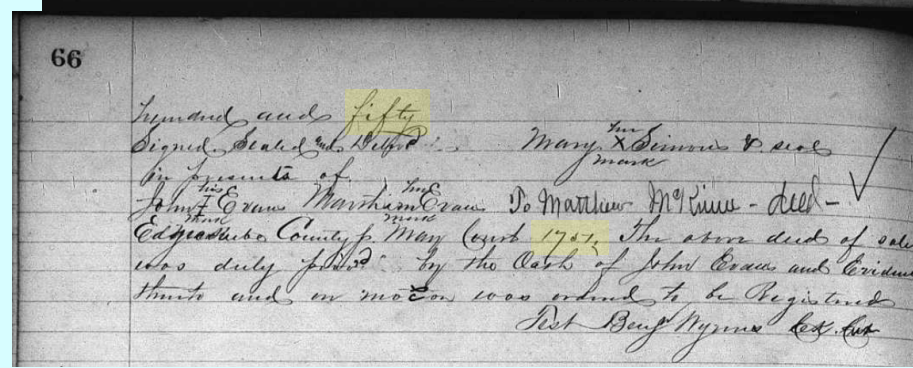 66
hundred and fifty
Signed Sealed and Delivrd
in presents of
Mary her X mark Simons & seal
John his mark Evans Marsham his mark Evans To Matthew McKinne - deed -
County p. May Court 1751, The above deed of sale
was duly provd by the Oath of John Evans and Eviden
thereto and on motion was ordered to be Registered
Test Benj Wynns